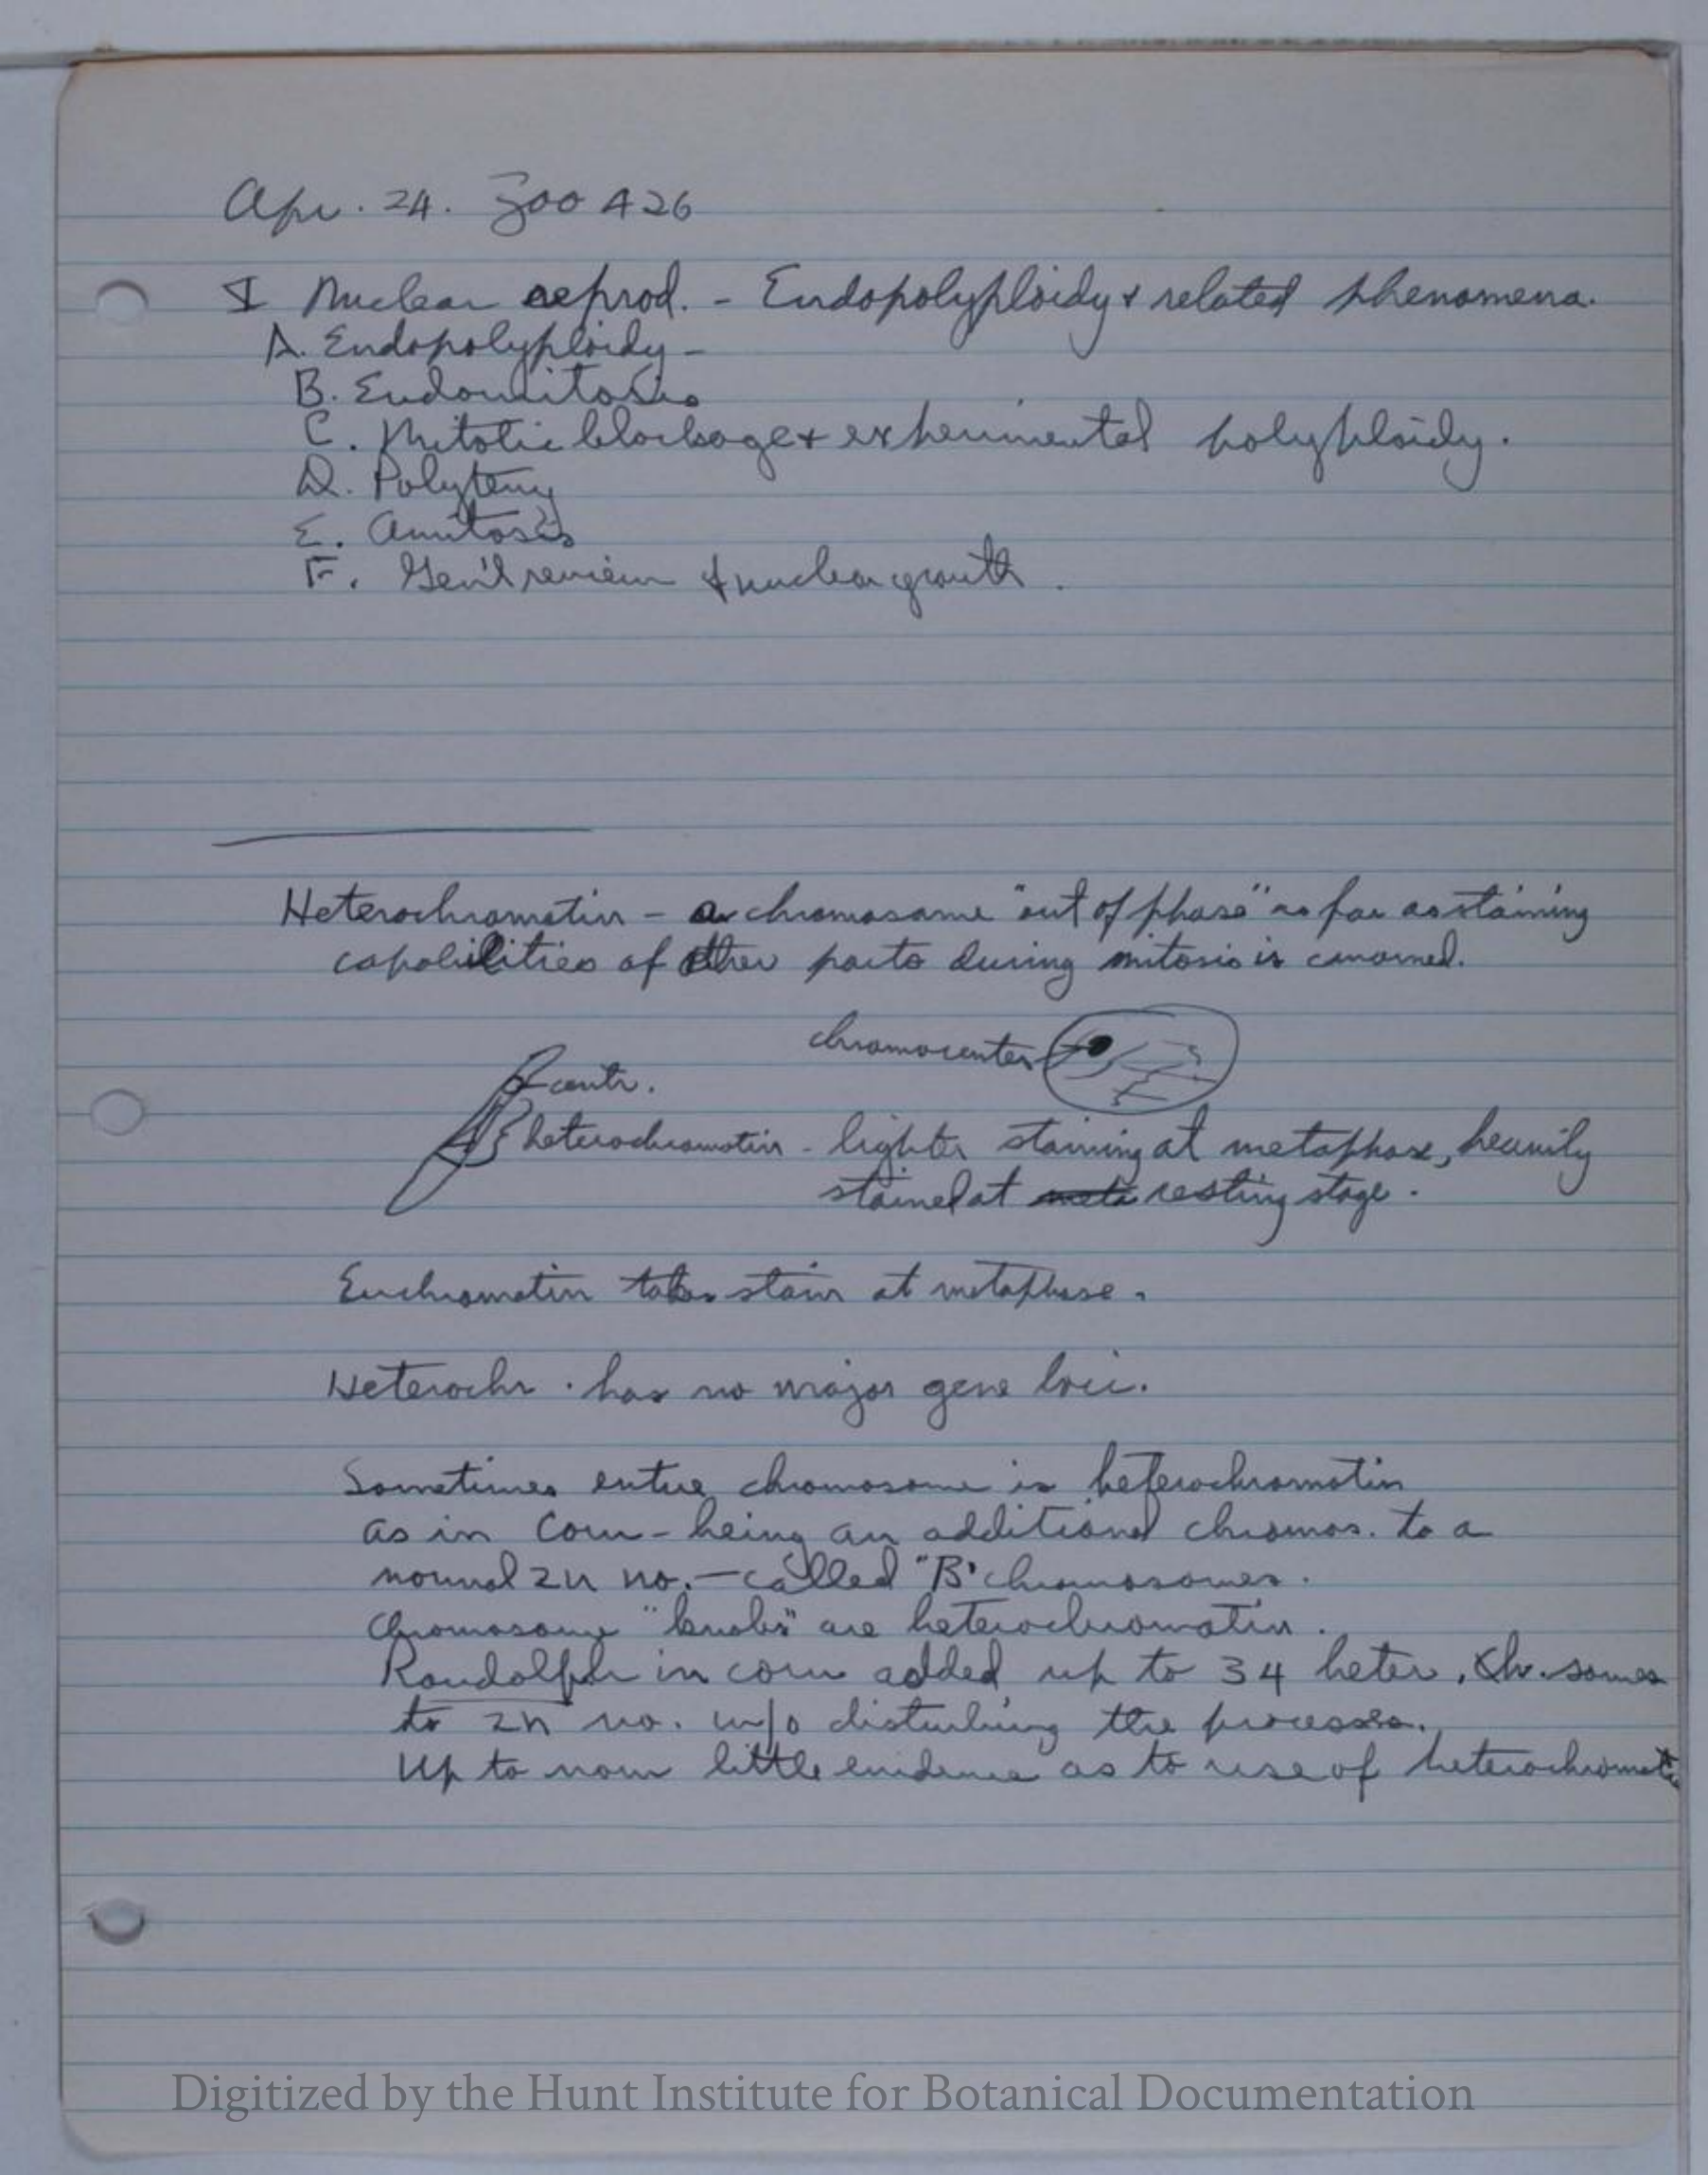 Apr. 24. Zoo 426
I Nuclear reprod. - Endopolyploidy & related phenomena.
A. Endopolyploidy -
B. Endomitosis
C. Mitotic blockage & experimental polyploidy.
D. Polyteny
E. Amitosis
F. Gen'l review of nuclear growth.
Heterochromatin - a chromosome "out of phase" as far as staining
capabilities of other parts during mitosis is concerned.
chromocenter
centr.
heterochromatin - lighter staining at metaphase, heavily
stained at resting stage.
Euchromatin takes stain at metaphase.
Heterochr. has no major gene loci.
Sometimes entire chromosome is heterochromatin
as in Corn - being an additional chromos. to a
normal 2n no. - called "B" chromosomes.
Chromosome "knobs" are heterochromatin.
Randolph in corn added up to 34 heter. chr. somes
to 2n no. w/o disturbing the processes.
Up to now little evidence as to use of heterochromatin
Digitized by the Hunt Institute for Botanical Documentation